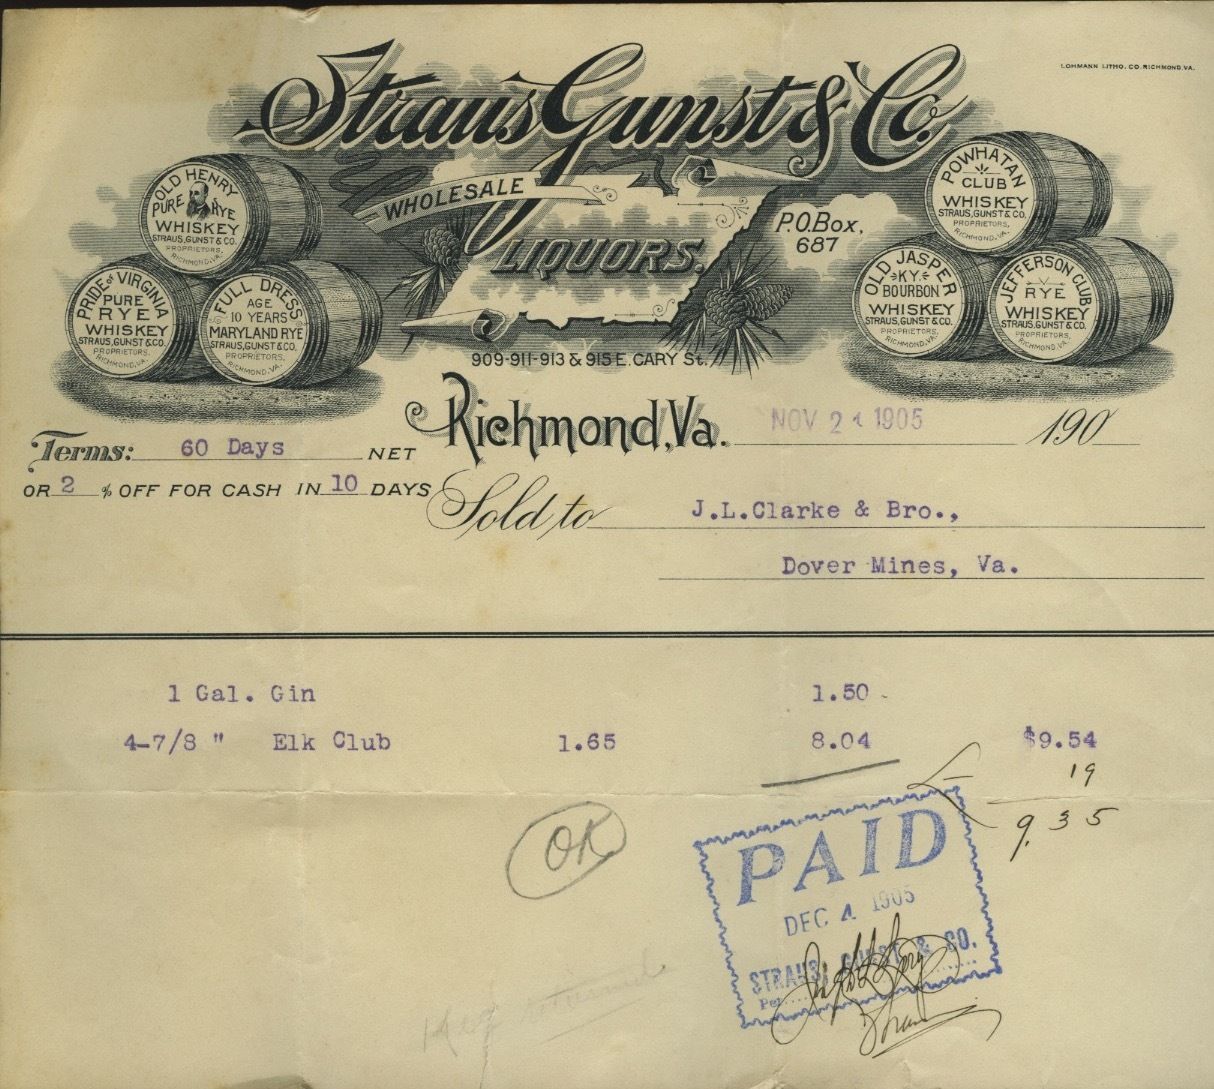 LOHMANN LITHO. CO. RICHMOND, VA.
Straus Gunst & Co.
WHOLESALE
LIQUORS.
P.O. Box,
687
OLD HENRY
PURE RYE
WHISKEY
STRAUS, GUNST & CO.
PROPRIETORS,
RICHMOND, VA.
PRIDE OF VIRGINIA
PURE
RYE
WHISKEY
STRAUS, GUNST & CO.
PROPRIETORS,
RICHMOND, VA.
FULL DRESS
AGE
10 YEARS
MARYLAND RYE
STRAUS, GUNST & CO.
PROPRIETORS,
RICHMOND, VA.
POWHATAN
CLUB
WHISKEY
STRAUS, GUNST & CO.
PROPRIETORS,
RICHMOND, VA.
OLD JASPER
KY.
BOURBON
WHISKEY
STRAUS, GUNST & CO.
PROPRIETORS,
RICHMOND, VA.
JEFFERSON CLUB
RYE
WHISKEY
STRAUS, GUNST & CO.
PROPRIETORS,
RICHMOND, VA.
909-911-913 & 915 E. CARY St.
Richmond, Va. NOV 21 1905 190
Terms: 60 Days NET
OR 2 % OFF FOR CASH IN 10 DAYS
Sold to J.L.Clarke & Bro.,
Dover Mines, Va.
1 Gal. Gin 1.50
4-7/8 " Elk Club 1.65 8.04 $9.54
19
9.35
OK
PAID
DEC 4 1905
STRAUS, GUNST & CO.
Per